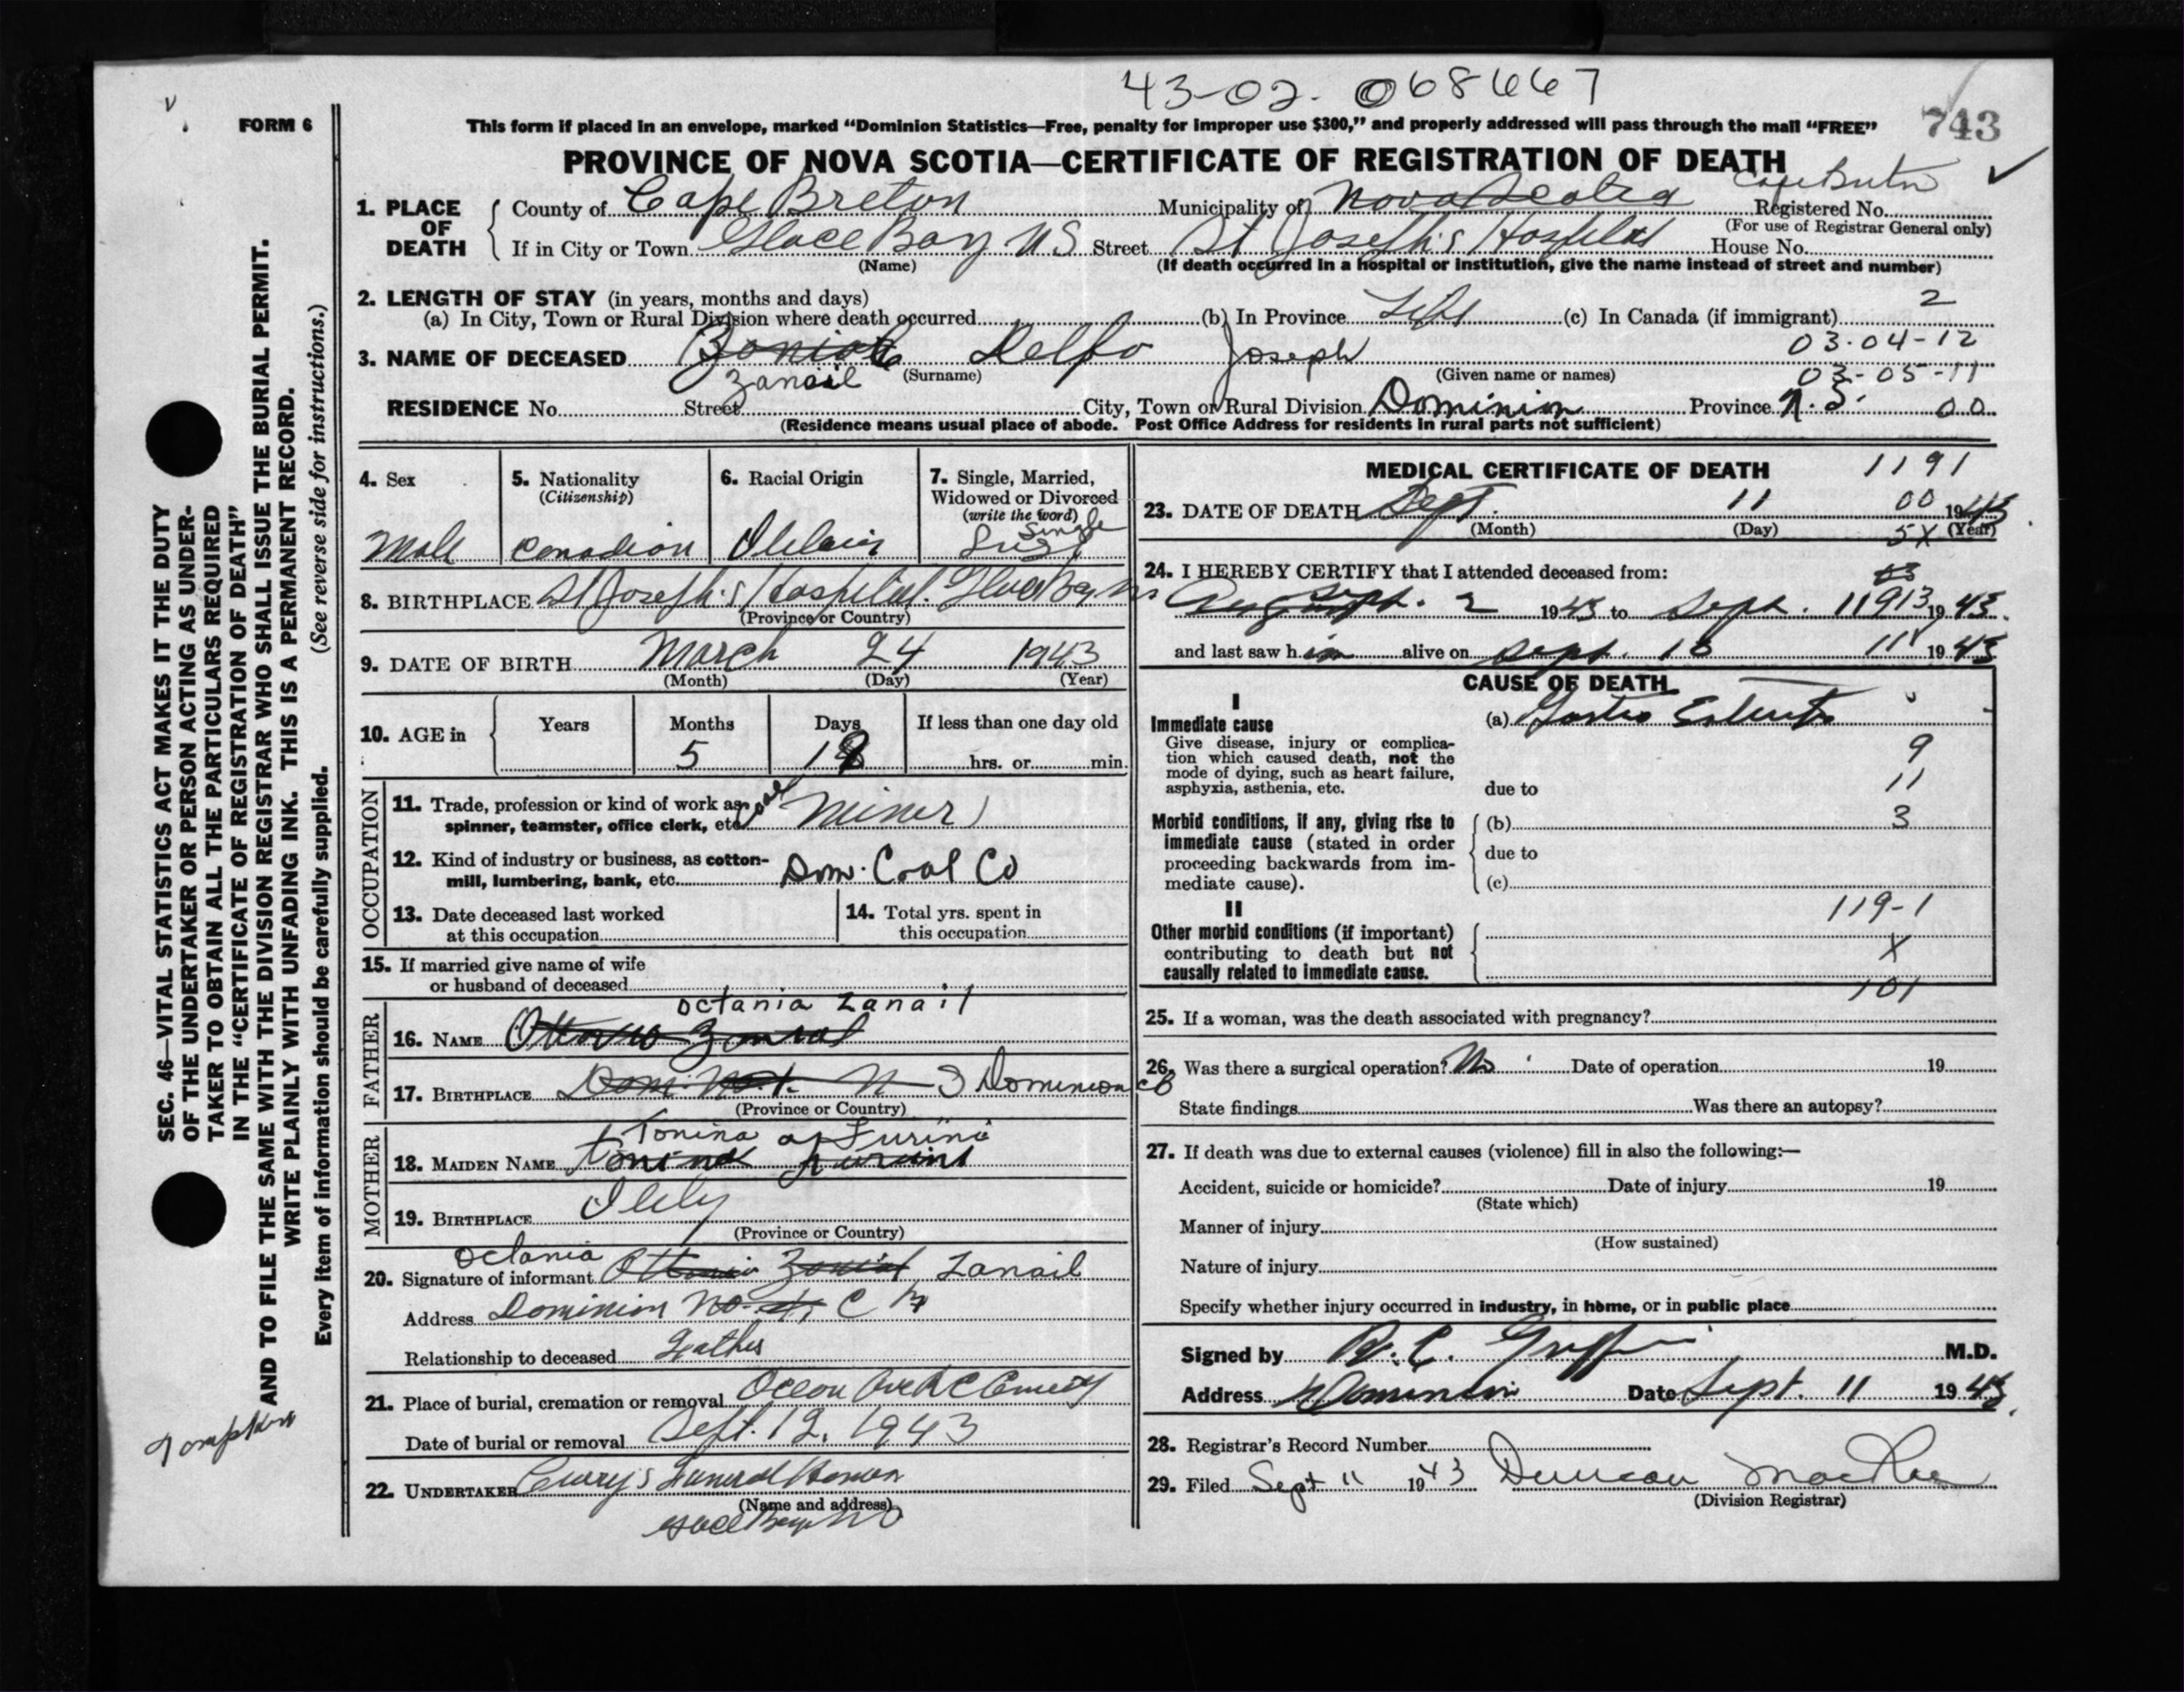 43-02- 068667
743
FORM 6
This form if placed in an envelope, marked "Dominion Statistics—Free, penalty for improper use $300," and properly addressed will pass through the mail "FREE"
PROVINCE OF NOVA SCOTIA—CERTIFICATE OF REGISTRATION OF DEATH
Cape Breton
1. PLACE OF DEATH
County of Cape Breton Municipality of Nova Scotia Registered No.
(For use of Registrar General only)
If in City or Town Glace Bay NS Street St Joseph's Hospital House No.
(Name) (If death occurred in a hospital or institution, give the name instead of street and number)
2. LENGTH OF STAY (in years, months and days)
(a) In City, Town or Rural Division where death occurred (b) In Province Life (c) In Canada (if immigrant) 2
03-04-12
3. NAME OF DECEASED Delfo Joseph
Zanail (Surname) (Given name or names) 03-05-11
RESIDENCE No. Street City, Town or Rural Division Dominion Province N.S. 00
(Residence means usual place of abode. Post Office Address for residents in rural parts not sufficient)
4. Sex Male
5. Nationality (Citizenship) Canadian
6. Racial Origin
7. Single, Married, Widowed or Divorced (write the word) Single
8. BIRTHPLACE St Joseph's Hospital. Glace Bay NS
(Province or Country)
9. DATE OF BIRTH March 24 1943
(Month) (Day) (Year)
10. AGE in Years Months Days If less than one day old
5 18 hrs. or min.
OCCUPATION
11. Trade, profession or kind of work as spinner, teamster, office clerk, etc. Coal Miner
12. Kind of industry or business, as cotton-mill, lumbering, bank, etc. Dom. Coal Co
13. Date deceased last worked at this occupation
14. Total yrs. spent in this occupation
15. If married give name of wife or husband of deceased
FATHER
Octania Zanail
16. NAME
17. BIRTHPLACE Dominion CB
(Province or Country)
MOTHER
Tonina Furini
18. MAIDEN NAME
19. BIRTHPLACE
(Province or Country)
Octania
20. Signature of informant Zanail
Address Dominion No. C B
Relationship to deceased Father
21. Place of burial, cremation or removal
Date of burial or removal Sept. 12, 1943
22. UNDERTAKER Curry's Funeral Home
(Name and address)
Glace Bay NS
MEDICAL CERTIFICATE OF DEATH 1191
23. DATE OF DEATH Sept. 11 00 1943
(Month) (Day) 5X (Year)
24. I HEREBY CERTIFY that I attended deceased from:
Sept. 2 1943 to Sept. 11 1943
and last saw him alive on Sept. 10 1943
CAUSE OF DEATH
I
Immediate cause (a) Gastro Enteritis
Give disease, injury or complication which caused death, not the mode of dying, such as heart failure, asphyxia, asthenia, etc.
9
11
due to
Morbid conditions, if any, giving rise to immediate cause (stated in order proceeding backwards from immediate cause).
(b) 3
due to
(c)
II
119-1
Other morbid conditions (if important) contributing to death but not causally related to immediate cause.
X
101
25. If a woman, was the death associated with pregnancy?
26. Was there a surgical operation? No Date of operation 19
State findings Was there an autopsy?
27. If death was due to external causes (violence) fill in also the following:—
Accident, suicide or homicide? Date of injury 19
(State which)
Manner of injury
(How sustained)
Nature of injury
Specify whether injury occurred in industry, in home, or in public place
Signed by Griffin M.D.
Address Dominion Date Sept. 11 1943
28. Registrar's Record Number
29. Filed Sept 11 1943 Duncan MacRae
(Division Registrar)
SEC. 46—VITAL STATISTICS ACT MAKES IT THE DUTY
OF THE UNDERTAKER OR PERSON ACTING AS UNDER-
TAKER TO OBTAIN ALL THE PARTICULARS REQUIRED
IN THE "CERTIFICATE OF REGISTRATION OF DEATH"
AND TO FILE THE SAME WITH THE DIVISION REGISTRAR WHO SHALL ISSUE THE BURIAL PERMIT.
WRITE PLAINLY WITH UNFADING INK. THIS IS A PERMANENT RECORD.
Every item of information should be carefully supplied. (See reverse side for instructions.)
Tompkins